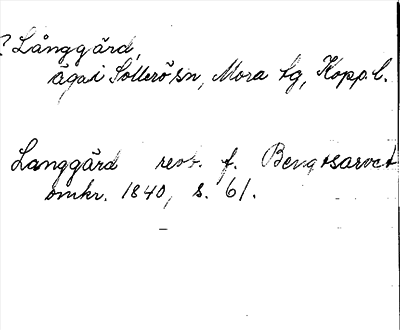 ? Långgård,
ägai Sollerö sn, Mora tg, Kopp. l.
Langgård revb. f. Bengtsarvet
omkr. 1840, s. 61.